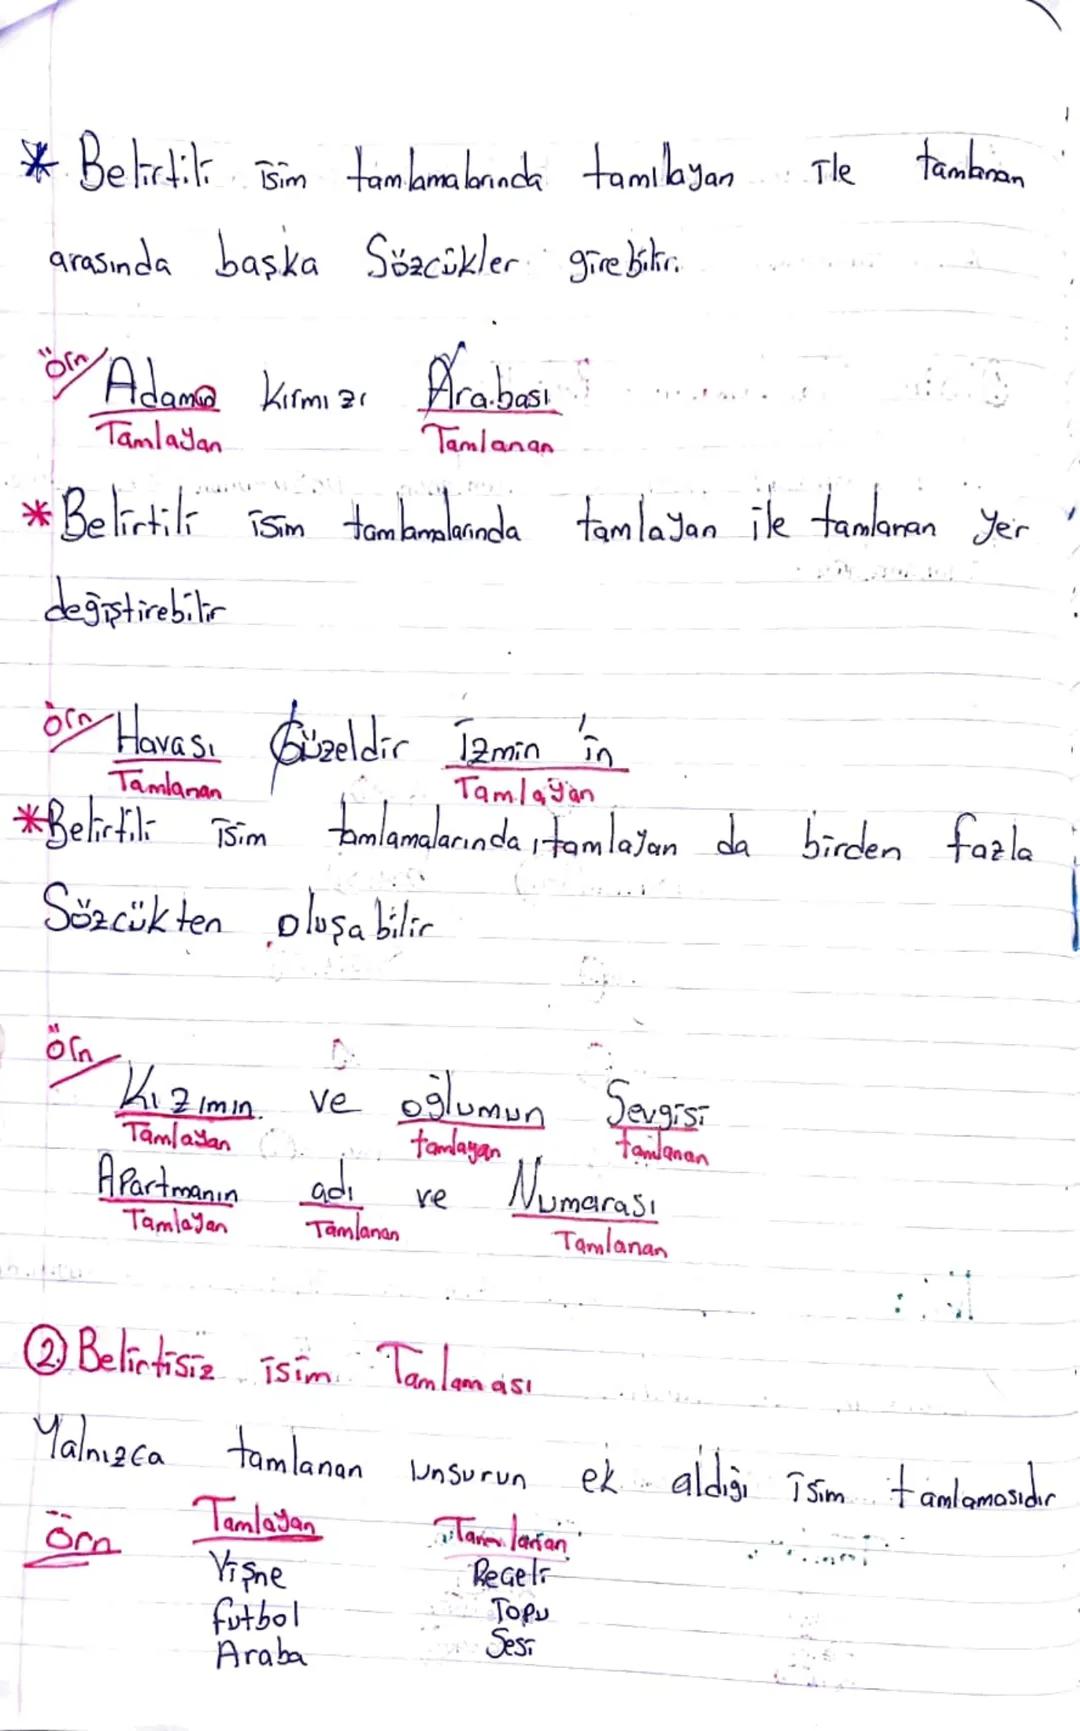 * Belirtili isim tamlamalarında tamılayan ile tamlanan
arasında başka Sözcükler girebilir.
örn Adamın kırmızı Arabası
Tamlayan Tamlanan
* Belirtili isim tamlamalarında tamlayan ile tamlanan yer
değiştirebilir
örn Havası Güzeldir İzmin'in
Tamlanan Tamlayan
* Belirtili isim tamlamalarında, tamlayan da birden fazla
Sözcükten oluşabilir
örn
Kızımın ve oğlumun Sevgisi
Tamlayan tamlayan tamlanan
Apartmanın adı ve Numarası
Tamlayan Tamlanan Tamlanan
2. Belirtisiz isim Tamlaması
Yalnızca tamlanan unsurun ek aldığı isim tamlamasıdır
örn Tamlayan Tamlanan
Vişne Reçeli
futbol Topu
Araba Sesi